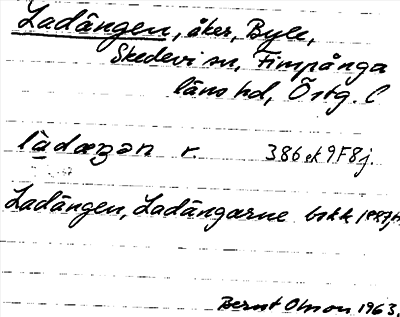 Ladängen, åker, Byle,
Skedevi sn, Finspånga
läns hd, Östg. L
r. 386 ek 9F8j
Ladängen, Ladängarne bskk
Bernt Olson 1963.